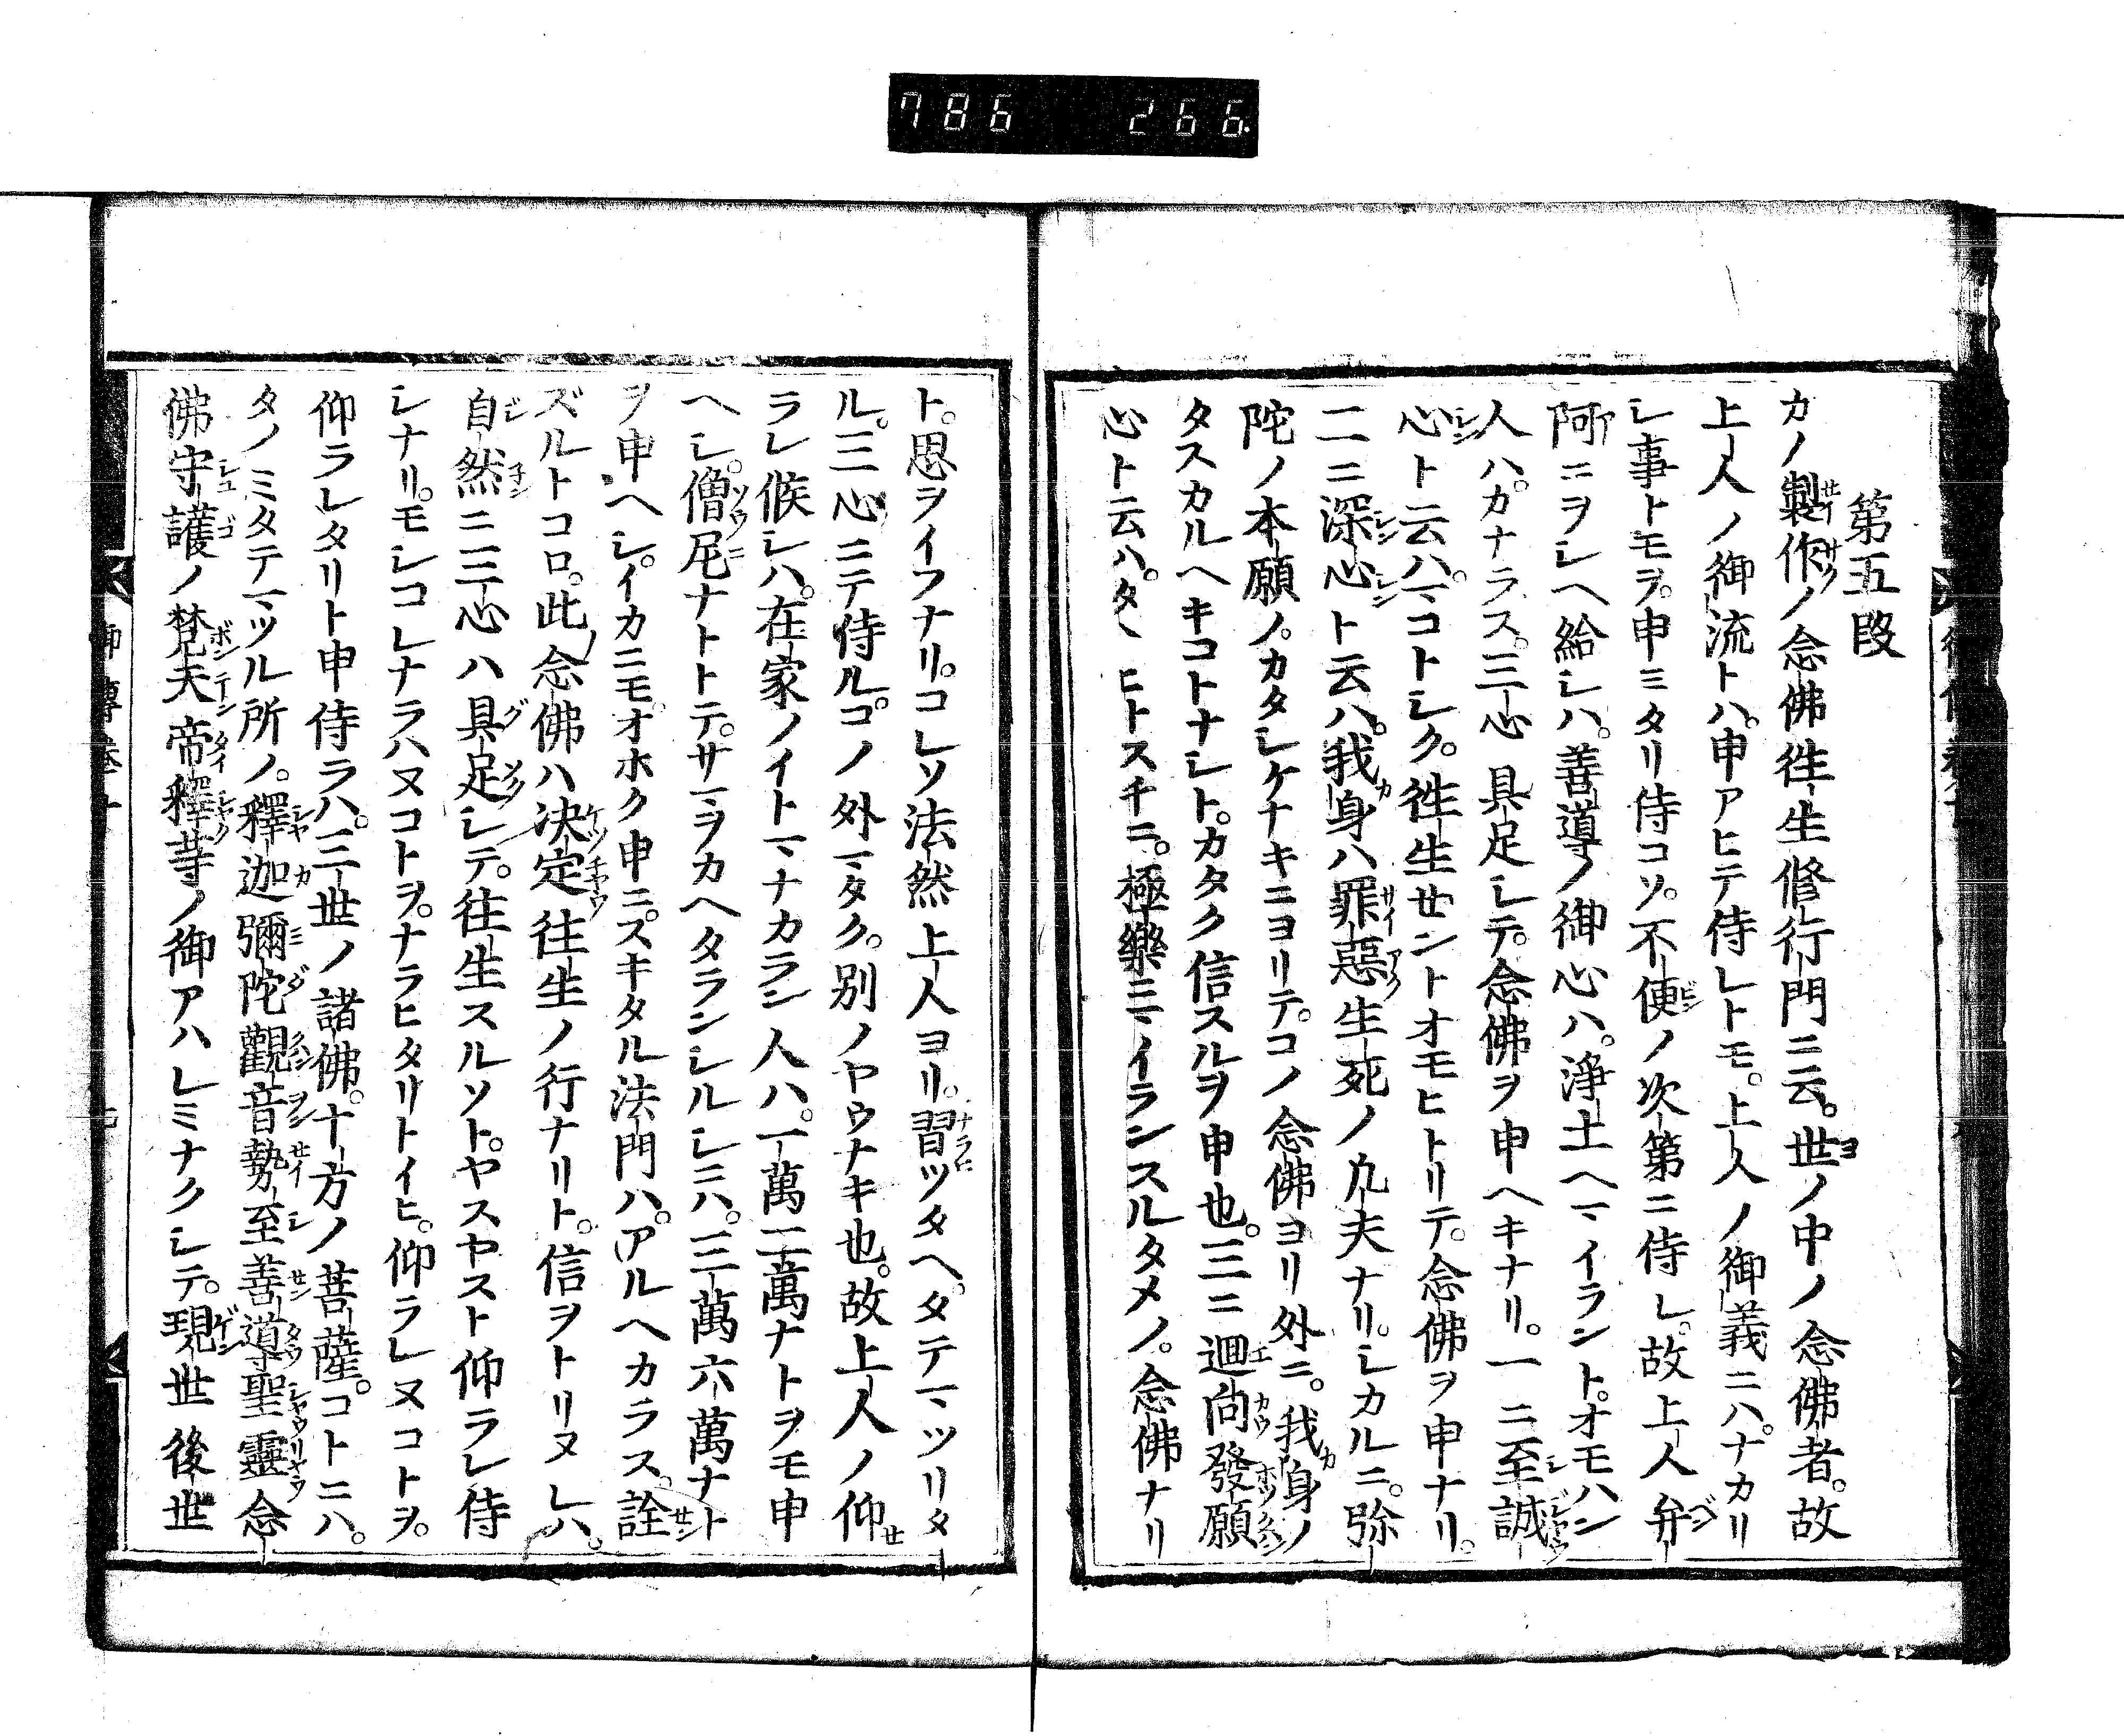 786 266
第五段
カノ製作ノ念佛徃生修行門ニ云。世ノ中ノ念佛者。故
上人ノ御流トハ。申アヒテ侍レトモ。上人ノ御義ニハ。ナカリ
シ事トモヲ。申ミタリ侍コソ。不便ノ次第ニ侍レ。故上人弁
阿ニヲシヘ給シハ。善導ノ御心ハ。浄土ヘマイラント。オモハン
人ハ。カナラス。三心具足シテ。念佛ヲ申ヘキナリ。一ニ至誠
心ト云ハ。マコトシク。徃生セントオモヒトリテ。念佛ヲ申ナリ。
二ニ深心ト云ハ。我身ハ罪惡生死ノ凡夫ナリ。シカルニ。弥
陀ノ本願ノ。カタシケナキニヨリテ。コノ念佛ヨリ外ニ。我身ノ
タスカルヘキコトナシト。カタク信スルヲ申也。三ニ廻向發願
心ト云ハ。タヽヒトスチニ。極樂ニマイランスルタメノ。念佛ナリ
ト。思ヲイフナリ。コレソ法然上人ヨリ。習ツタヘ。タテマツリタ
ル。三心ニテ侍ル。コノ外マタク。別ノヤウナキ也。故上人ノ仰
ラレ候シハ。在家ノイトマナカラン人ハ。一萬二萬ナトヲモ申
ヘシ。僧尼ナトトテ。サマヲカヘタランシルシニハ。三萬六萬ナト
ヲ申ヘシ。イカニモ。オホク申ニ。スキタル法門ハ。アルヘカラス。詮
ズルトコロ。此念佛ハ决定徃生ノ行ナリト。信ヲトリヌレハ。
自然ニ三心ハ具足シテ。徃生スルソト。ヤスヤスト仰ラレ侍
シナリ。モシコレナラハヌコトヲ。ナラヒタリトイヒ。仰ラレヌコトヲ。
仰ラレタリト申侍ラハ。三世ノ諸佛。十方ノ菩薩。コトニハ。
タノミタテマツル所ノ。釋迦彌陀觀音勢至善導聖靈念
佛守護ノ梵天帝釋等ノ御アハレミナクシテ。現世後世